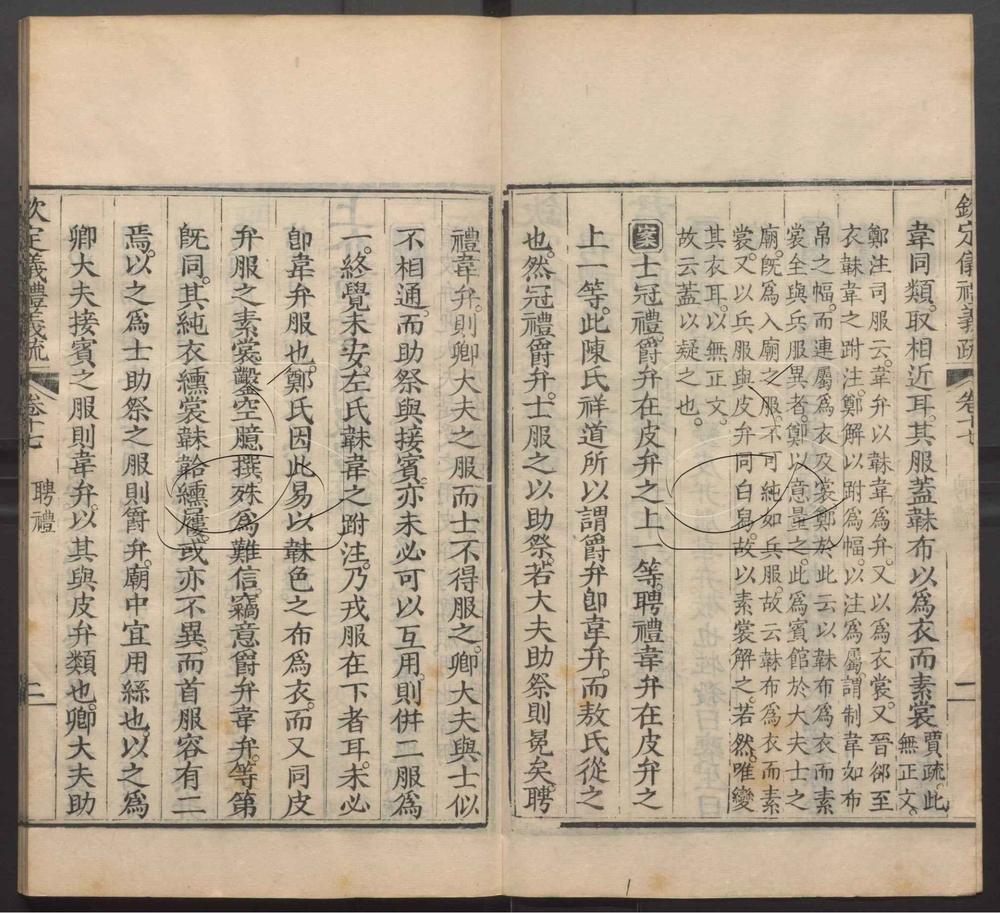 欽定儀禮義疏 卷十七 聘禮 二
韋同類。取相近耳。其服蓋韎布以爲衣而素裳 賈疏。此無正文。
鄭注司服云。韋弁以韎韋爲弁。又以爲衣裳。又晉郤至
衣韎韋之跗注。鄭解以跗爲幅。以注爲屬。謂制韋如布
帛之幅。而連屬爲衣及裳。鄭於此云以韎布爲衣而素
裳。全與兵服異者。鄭以意量之。此爲賓館於大夫士之
廟。旣爲入廟之服。不可純如兵服。故云韎布爲衣而素
裳。又以兵服與皮弁同白舄。故以素裳解之。若然。唯變
其衣耳。以無正文。
故云蓋以疑之也。
案 士冠禮。爵弁在皮弁之上一等。聘禮韋弁在皮弁之
上一等。此陳氏祥道所以謂爵弁卽韋弁。而敖氏從之
也。然冠禮爵弁。士服之以助祭。若大夫助祭則冕矣。聘
禮韋弁。則卿大夫之服而士不得服之。卿大夫與士似
不相通。而助祭與接賓。亦未必可以互用。則倂二服爲
一。終覺未安。左氏韎韋之跗注。乃戎服在下者耳。未必
卽韋弁服也。鄭氏因此易以韎色之布爲衣。而又同皮
弁服之素裳。鑿空臆撰。殊爲難信。竊意爵弁韋弁。等第
旣同。其純衣纁裳韎韐纁屨。或亦不異。而首服容有二
焉。以之爲士助祭之服則爵弁。廟中宜用絲也。以之爲
卿大夫接賓之服則韋弁。以其與皮弁類也。卿大夫助
欽定儀禮義疏 卷十七 聘禮 二